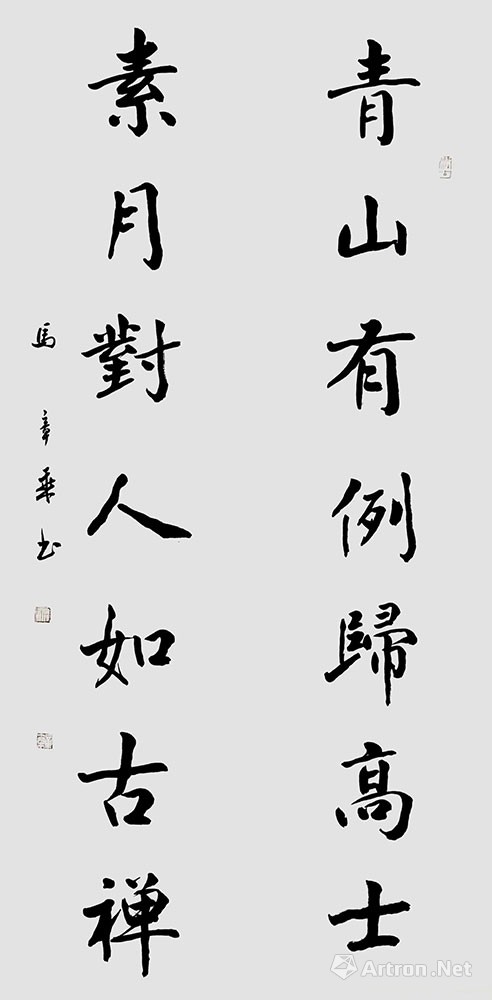 青山有例歸高士
素月對人如古禅
馬章乘书
Artron.Net